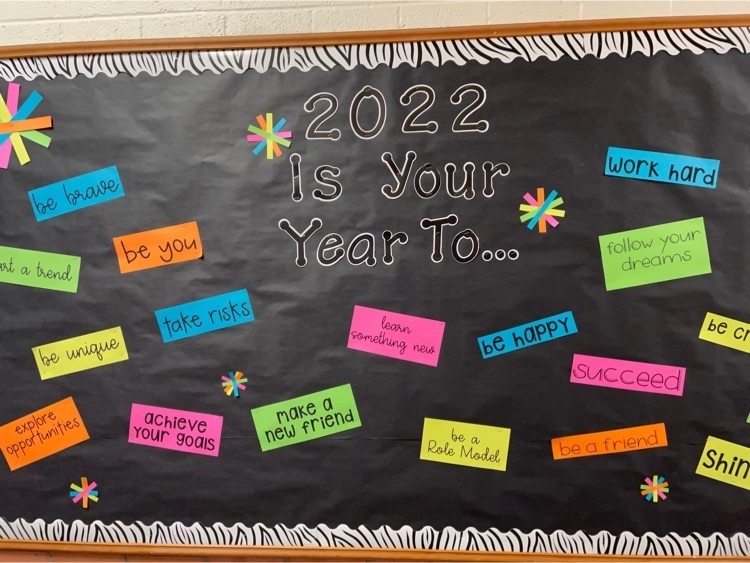 2022
Is Your
Year To...
work hard
be brave
be you
follow your
dreams
a trend
take risks
learn
something new
be happy
be unique
be
succeed
explore
opportunities
achieve
your goals
make a
new friend
be a
Role Model
be a friend